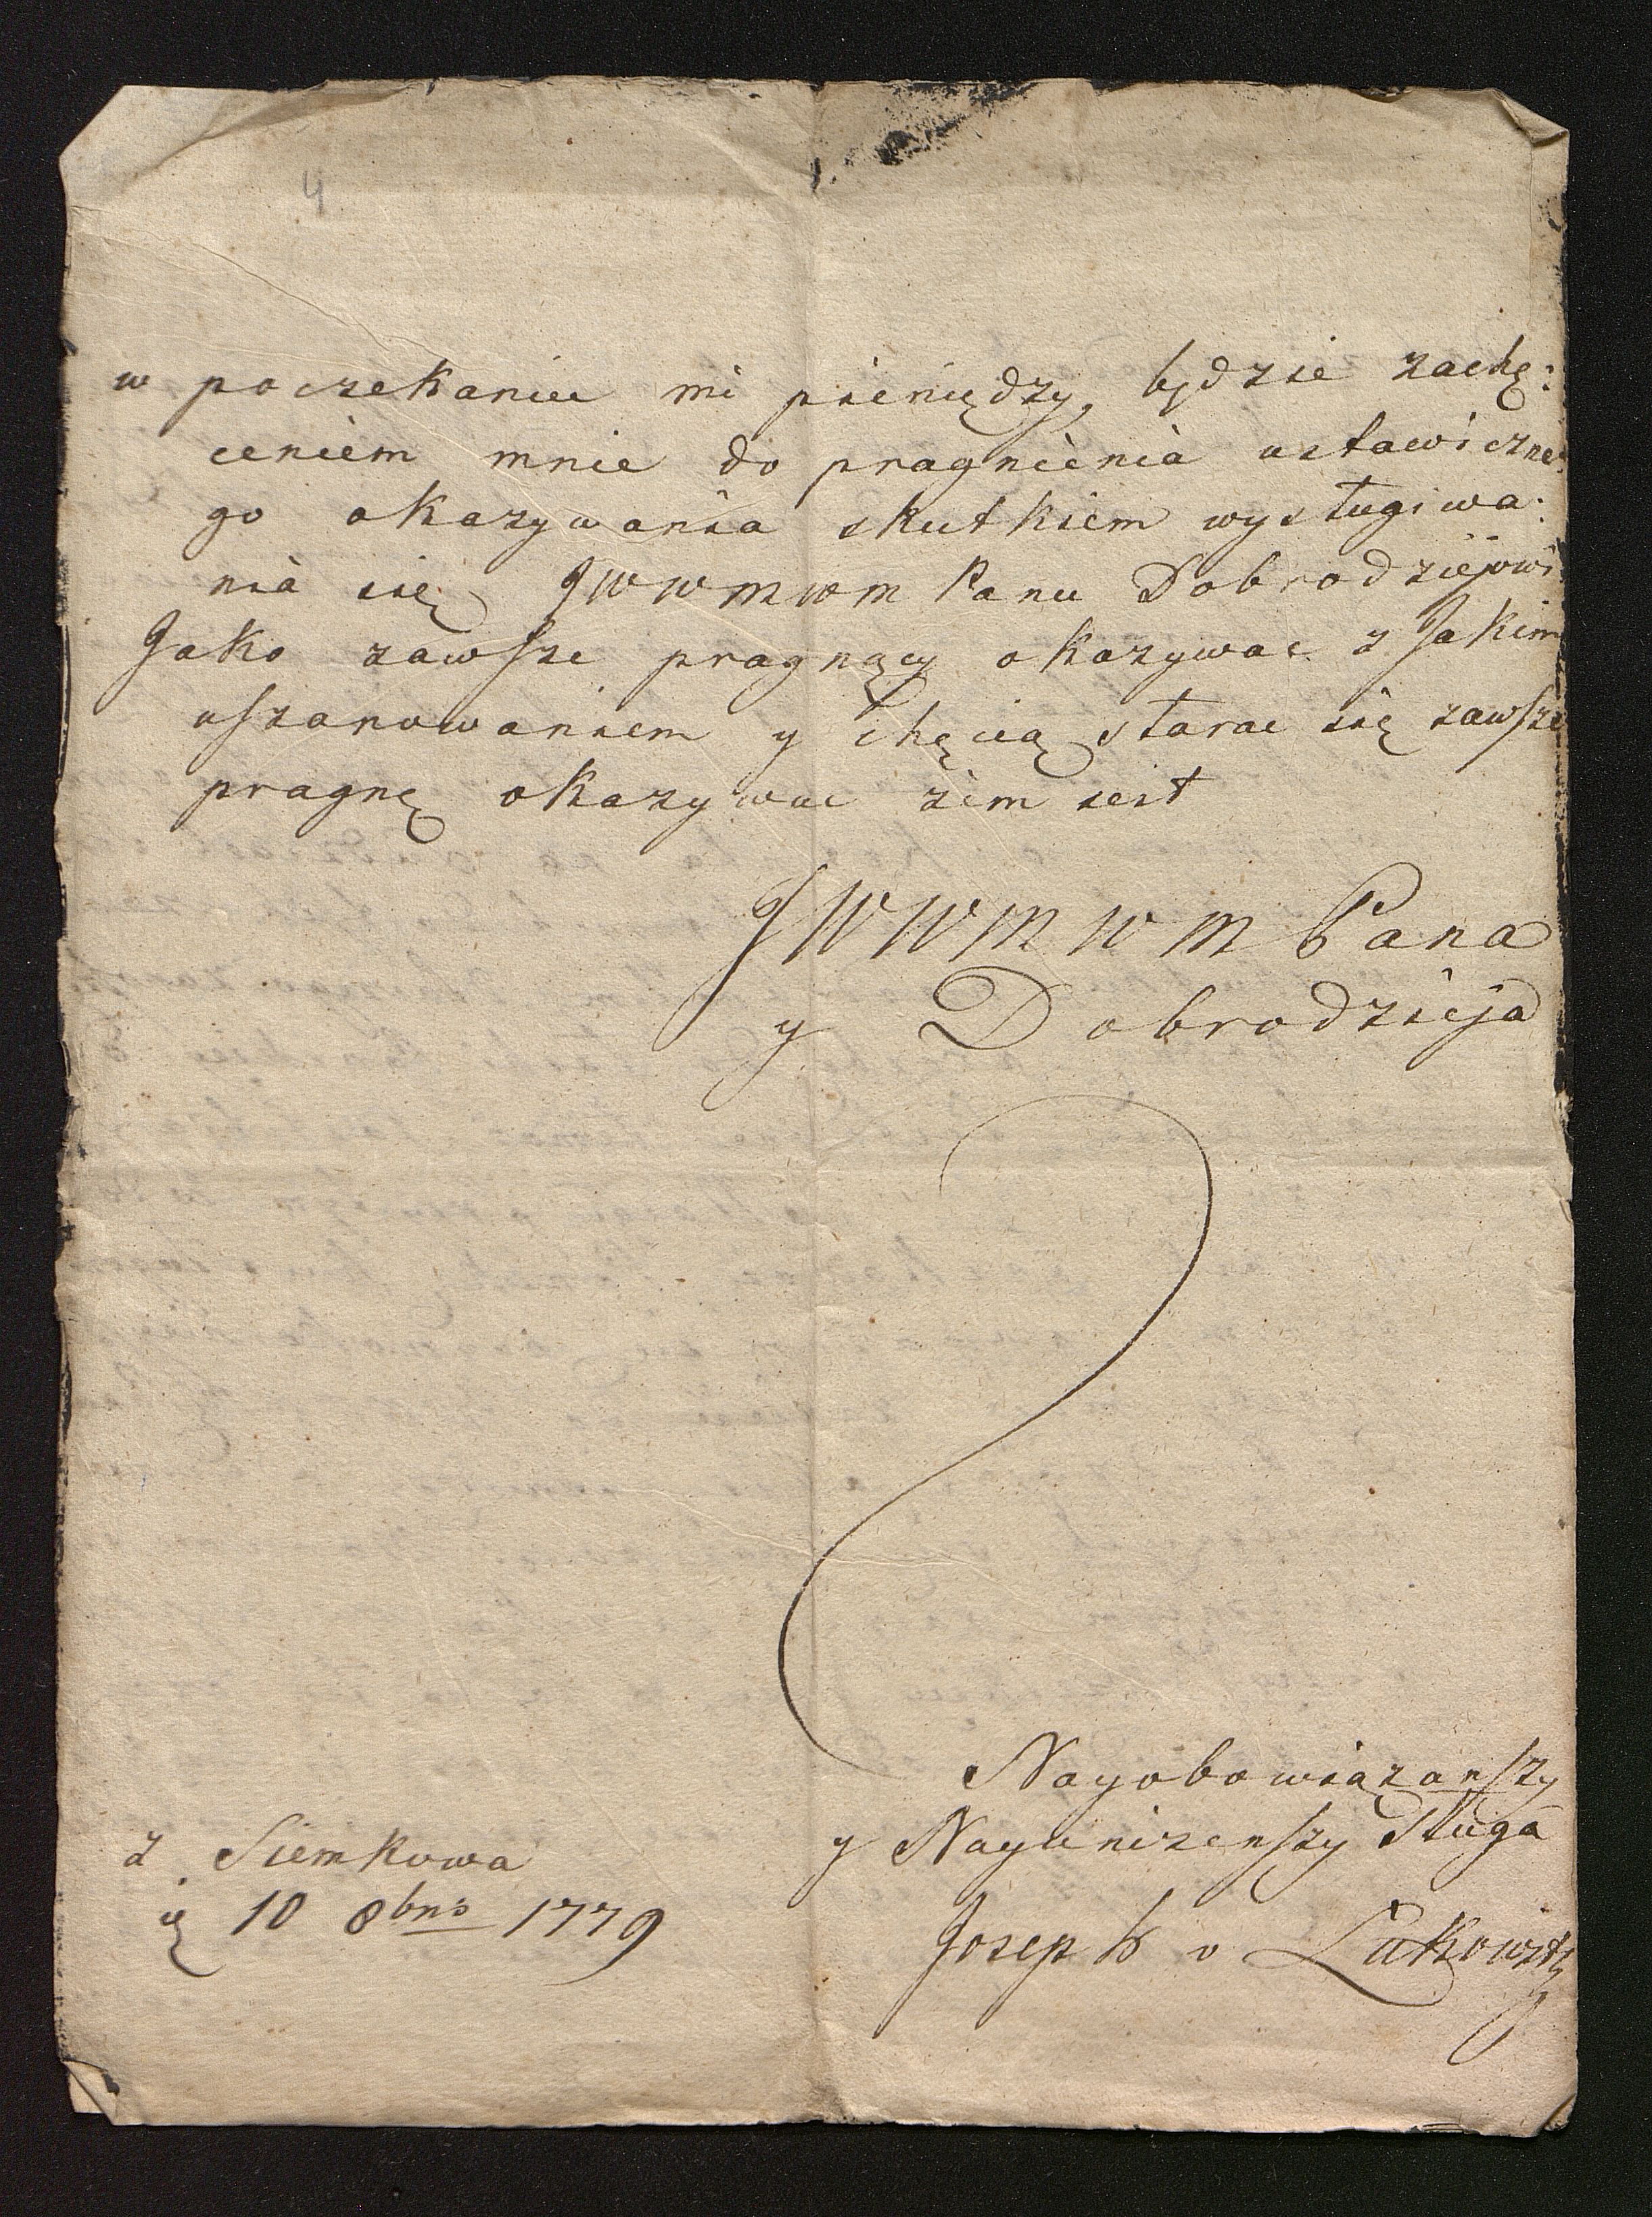 4
w poczekaniu mi pieniędzy, będzie zachę:
ceniem mnie do pragnienia ustawiczne:
go okazywania skutkiem wysługiwa:
nia się JWWMWM Panu Dobrodziejowi
Jako zawsze pragnący okazywac z Jakim
uszanowaniem y chęcią starac się zawsze
pragnę okazywac żem iest
JWWMWM Pana
y Dobrodzieja
Nayobowiązanszy
z Siemkowa y Nayunizenszy Sługa
10 8bris 1779 Joseph v